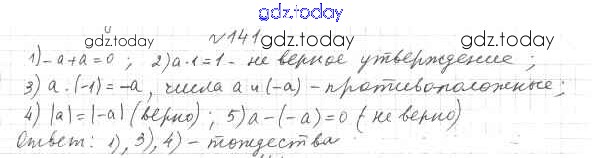 gdz.today
№141
gdz.today gdz.today
1) -a+a=0; 2) a·1=1 - не верное утверждение;
3) a·(-1)=-a, числа a и (-a) - противоположные;
4) |a|=|-a| (верно); 5) a-(-a)=0 (не верно)
Ответ: 1), 3), 4) - тождества
gdz.today gdz.today